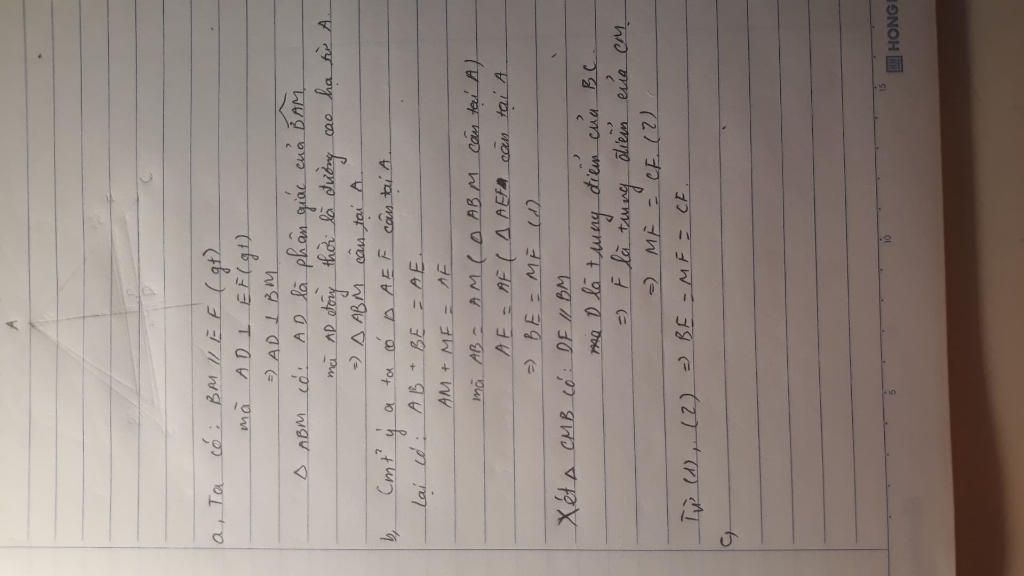 A
B
C
a, Ta có: BM // EF (gt)
mà AD ⊥ EF (gt)
=> AD ⊥ BM
Δ ABM có: AD là phân giác của BAM
mà AD đồng thời là đường cao hạ từ A.
=> Δ ABM cân tại A.
b, Cmt² ý a ta có Δ AEF cân tại A.
Lại có: AB + BE = AE.
AM + MF = AF
mà AB = AM (Δ ABM cân tại A)
AE = AF (Δ AEF cân tại A
=> BE = MF (1)
Xét Δ CMB có: DF // BM
mà D là trung điểm của BC.
=> F là trung điểm của CM.
=> MF = CF (2)
Từ (1), (2) => BE = MF = CF.
c,
5
10
15
HONG